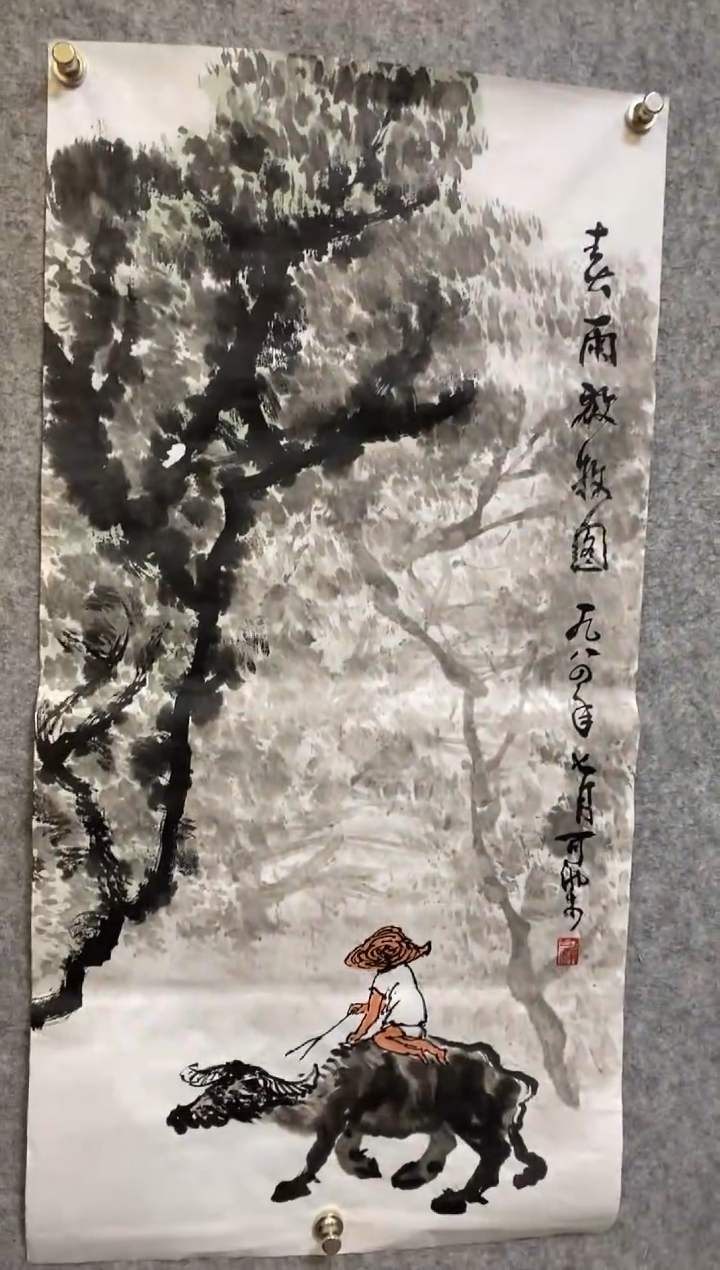 春雨放牧图 一九八四年七月可染